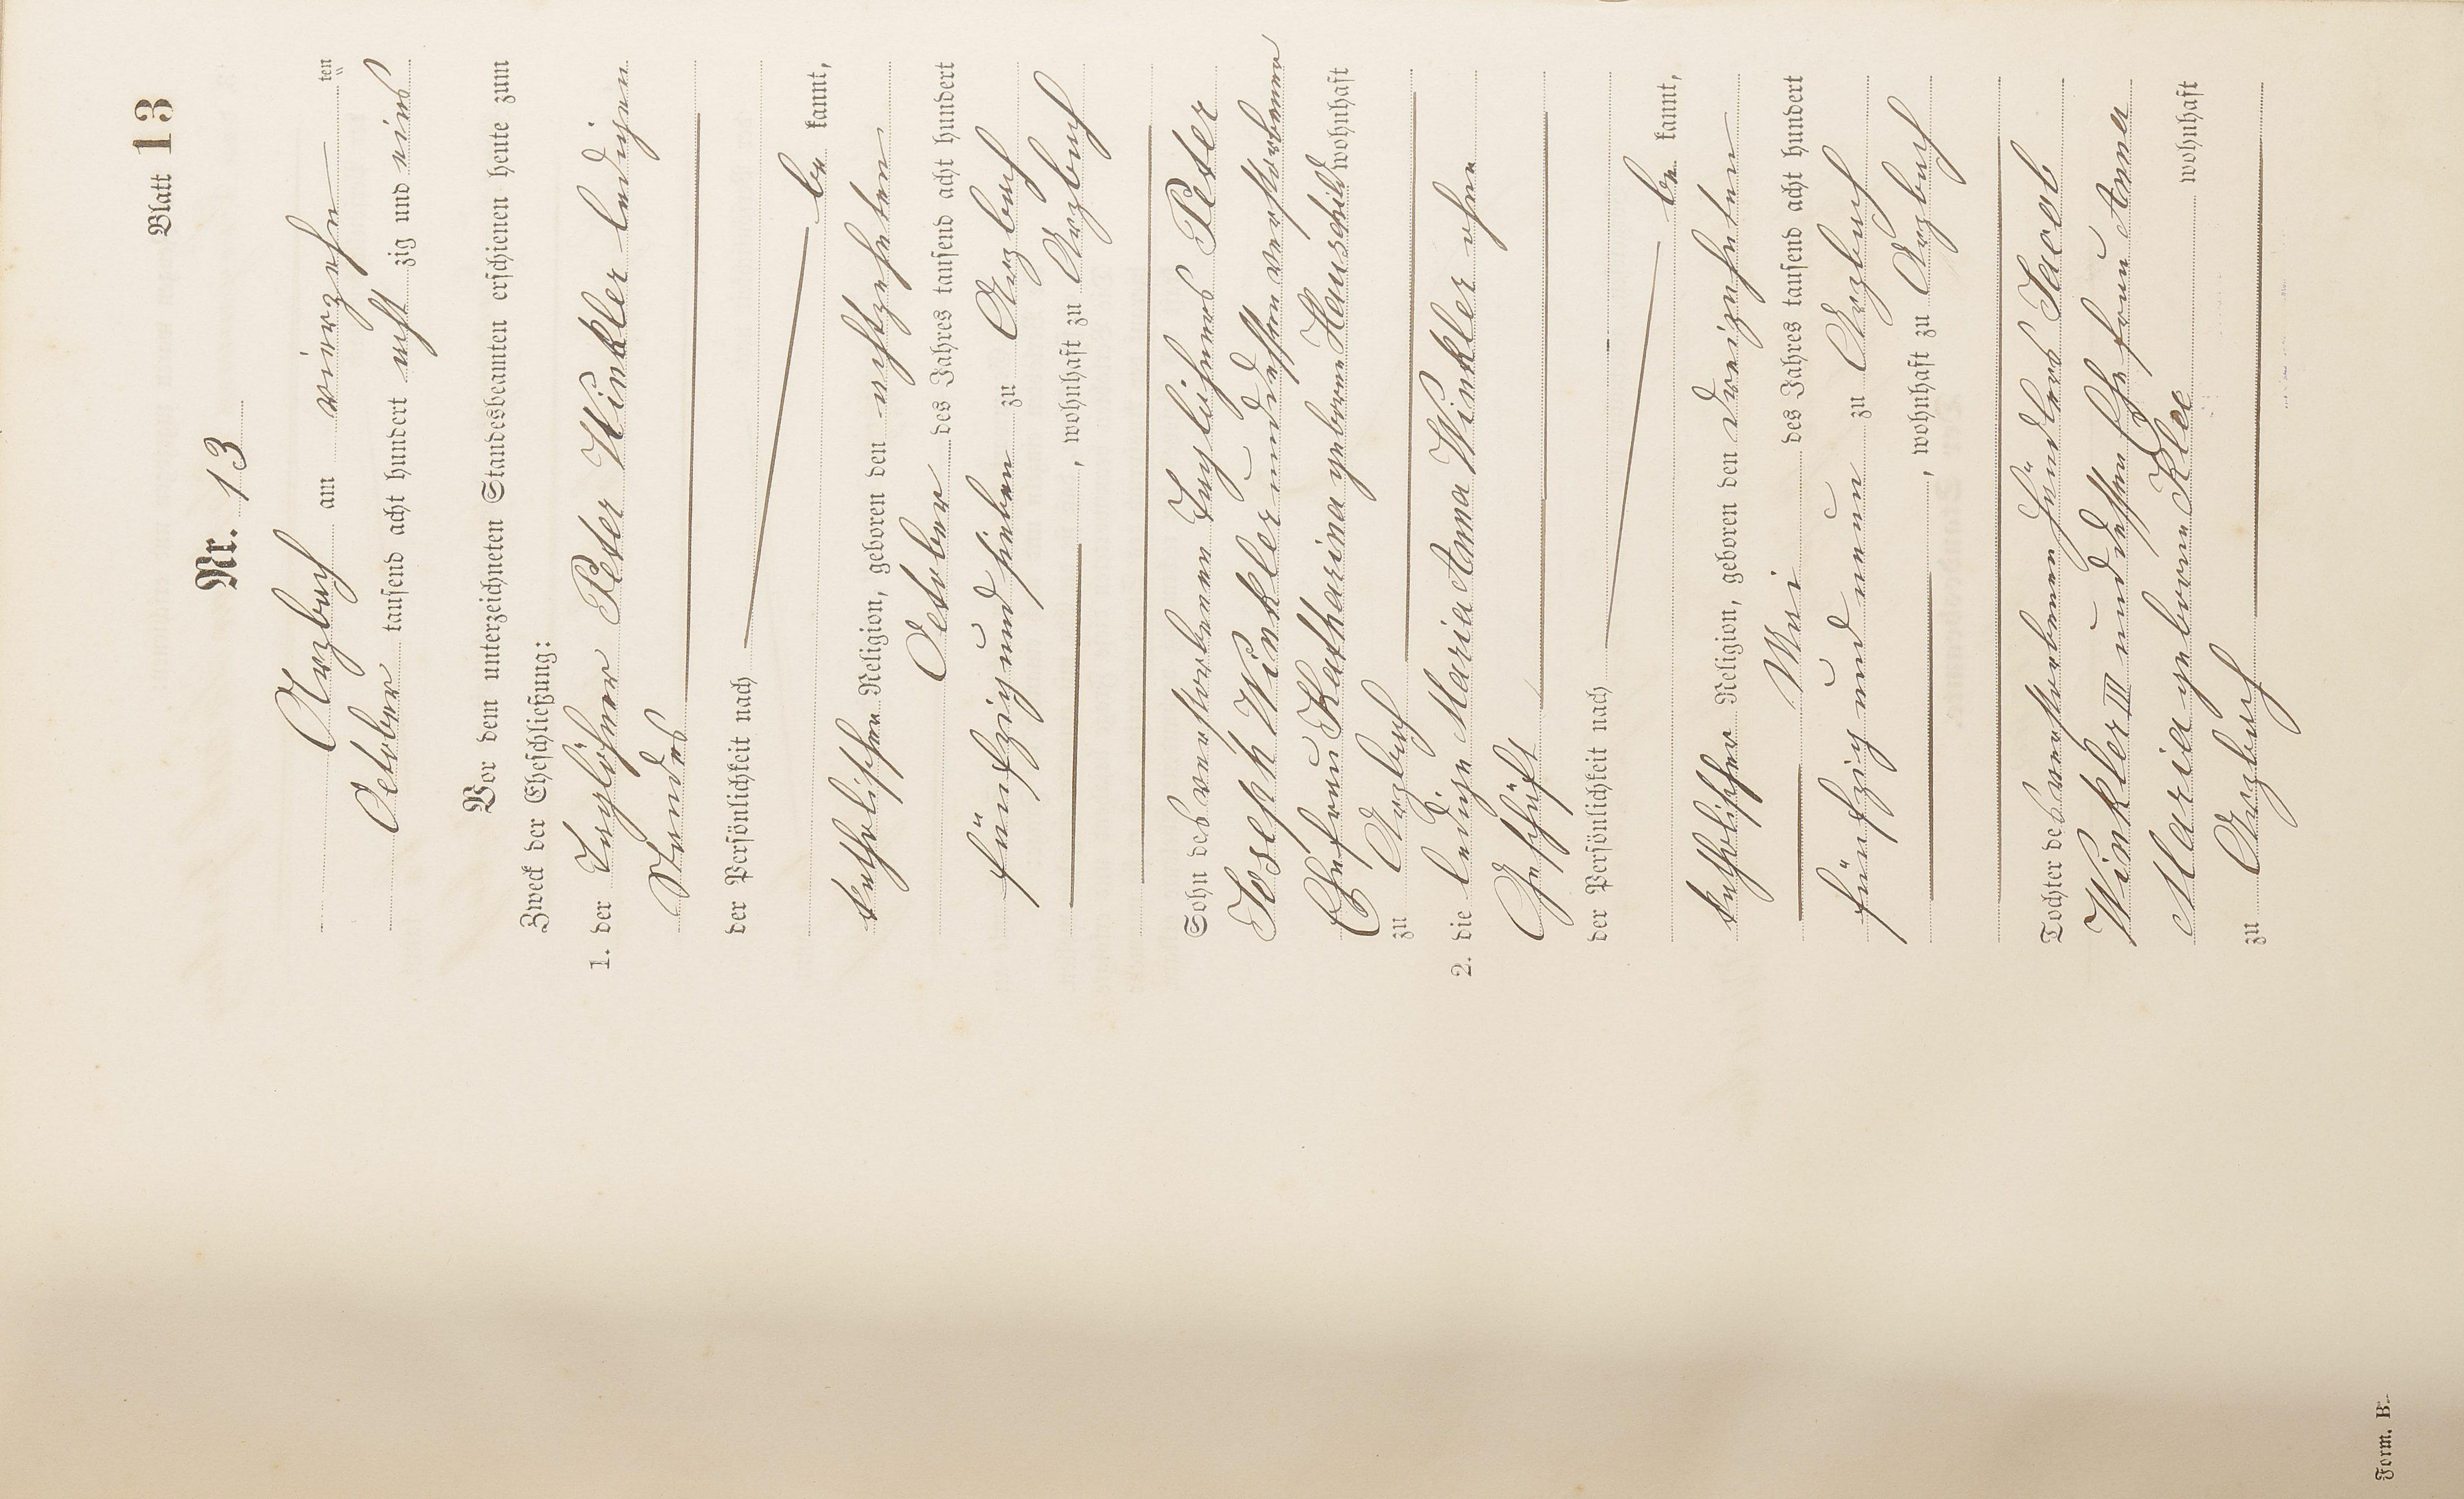 Blatt 13
Nr. 13
Arzbach am vierzehn ten
October tausend acht hundert acht zig und eins
Vor dem unterzeichneten Standesbeamten erschienen heute zum
Zweck der Eheschließung:
1. der Taglöhner Peter Winkler ledigen
Standes
der Persönlichkeit nach
be kannt,
katholischer Religion, geboren den achtzehnten
October des Jahres tausend acht hundert
fünfzig und sieben zu Arzbach
, wohnhaft zu Arzbach
Sohn des verstorbenen Taglöhners Peter
Joseph Winkler und dessen verstorbenen
Ehefrau Katharina geborene Hauschild wohnhaft
zu Arzbach
2. die ledige Maria Anna Winkler ohne
Geschäft
der Persönlichkeit nach
be kannt,
katholischer Religion, geboren den dreizehnten
Mai des Jahres tausend acht hundert
fünfzig und neun zu Arzbach
, wohnhaft zu Arzbach
Tochter des verstorbenen Händlers Jacob
Winkler III und dessen Ehefrau Anna
Maria geborene Klee wohnhaft
zu Arzbach
Form. B.